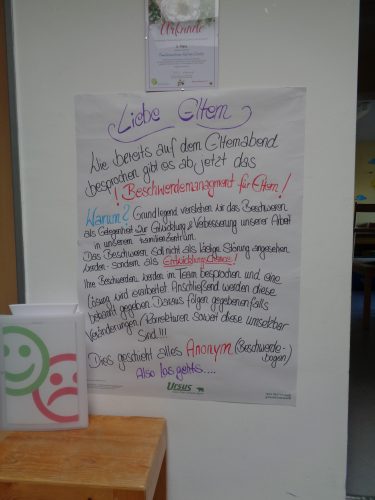 Urkunde
Liebe Eltern
Wie bereits auf dem Elternabend
besprochen gibt es ab jetzt das
! Beschwerdemanagment für Eltern!
Warum? Grundlegend verstehen wir das Beschweren
als Gelegenheit zur Entwicklung & Verbesserung unserer Arbeit
in unserem Familienzentrum.
Das Beschweren soll nicht als lästige Störung angesehen
werden - sondern als Entwicklungschance!
Ihre Beschwerden werden im Team besprochen und eine
Lösung wird erarbeitet. Anschließend werden diese
bekannt gegeben. Daraus folgen gegebenenfalls
Veränderungen/Korrekturen soweit diese umsetzbar
sind!!!
Dies geschieht alles Anonym (Beschwerde-
bogen)
Also los gehts....
Ursus